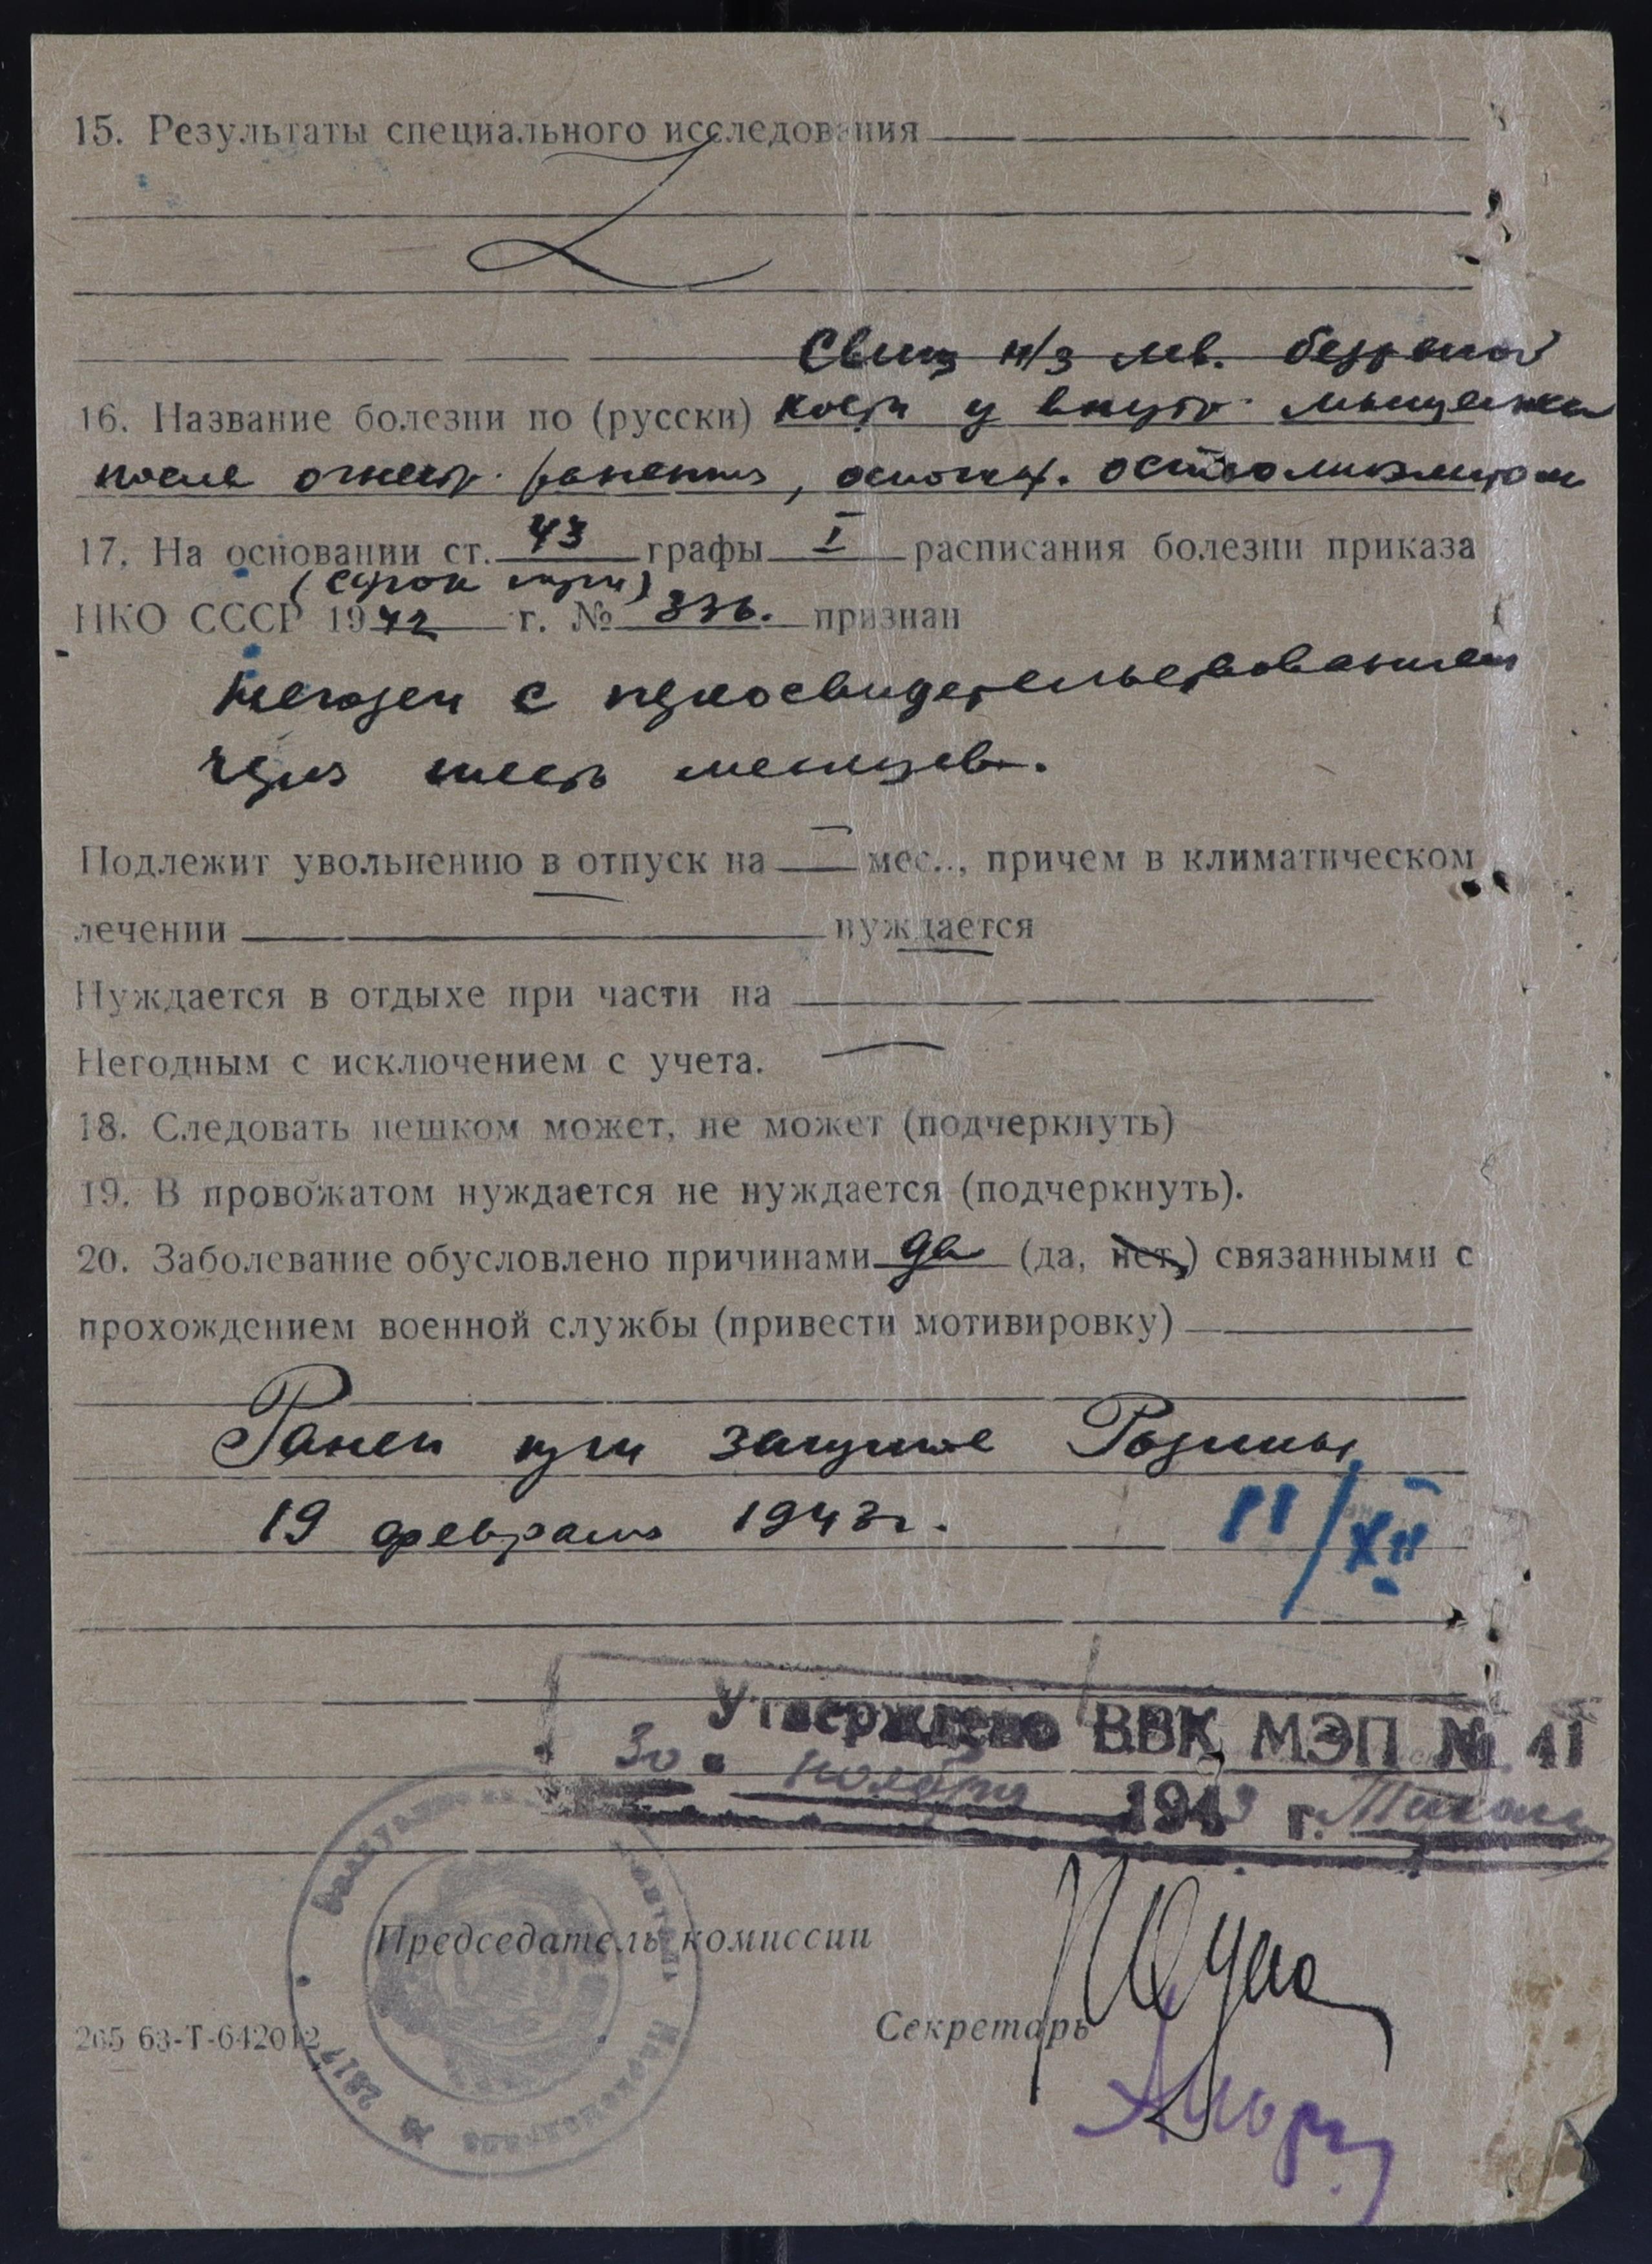 15. Результаты специального исследования
Свищ н/з лев. бедрен­ной
16. Название болезни по (русски) кости у внутр. мыщелка
после огнестр. ранения, осложн. остеомиэлитом
17. На основании ст. 43 графы I расписания болезни приказа
(строк три)
НКО СССР 1942 г. № 336. признан
Негоден с переосвидетельствованием
через шесть месяцев.
Подлежит увольнению в отпуск на — мес.., причем в климатическом
лечении нуждается
Нуждается в отдыхе при части на
Негодным с исключением с учета.
18. Следовать пешком может, не может (подчеркнуть)
19. В провожатом нуждается не нуждается (подчеркнуть).
20. Заболевание обусловлено причинами да (да, нет,) связанными с
прохождением военной службы (привести мотивировку)
Ранен при защите Родины
19 февраля 1943г.
11/XII
Утверждено ВВК МЭП № 41
30 ноября 1943 г.
Председатель комиссии
Секретарь
265 63-Т-642012
№ 2817